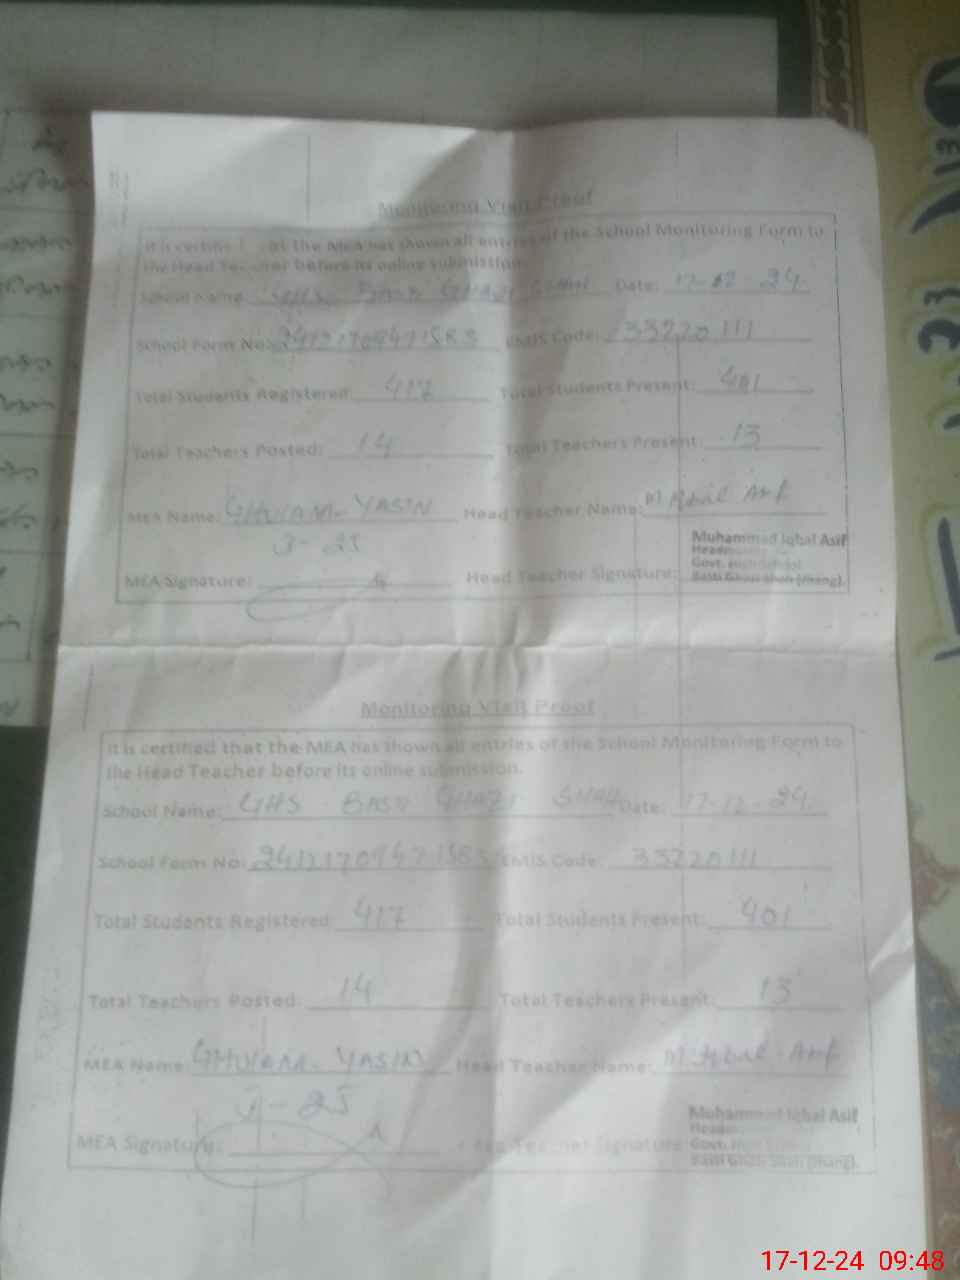 Monitoring Visit Proof
It is certified that the MEA has shown all entries of the School Monitoring Form to
the Head Teacher before its online submission.
School Name: GHS Basti GHAZI SHAH Date: 17-12-24
School Form No: 24121709471583 EMIS Code: 33220111
Total Students Registered: 417 Total Students Present: 401
Total Teachers Posted: 14 Total Teachers Present: 13
MEA Name: GHULAM YASIN Head Teacher Name: M Iqbal Asif
J-25
Muhammad Iqbal Asif
Govt. High School
MEA Signature: Head Teacher Signature: Basti Ghazi Shah (Jhang).
Monitoring Visit Proof
It is certified that the MEA has shown all entries of the School Monitoring Form to
the Head Teacher before its online submission.
School Name: GHS BASTI GHAZI SHAH Date: 17-12-24
School Form No: 24121709471583 EMIS Code: 33220111
Total Students Registered: 417 Total Students Present: 401
Total Teachers Posted: 14 Total Teachers Present: 13
MEA Name: GHULAM YASIN Head Teacher Name: M Iqbal Asif
J-25
Muhammad Iqbal Asif
MEA Signature: Head Teacher Signature: Govt. High School
Basti Ghazi Shah (Jhang).
17-12-24 09:48